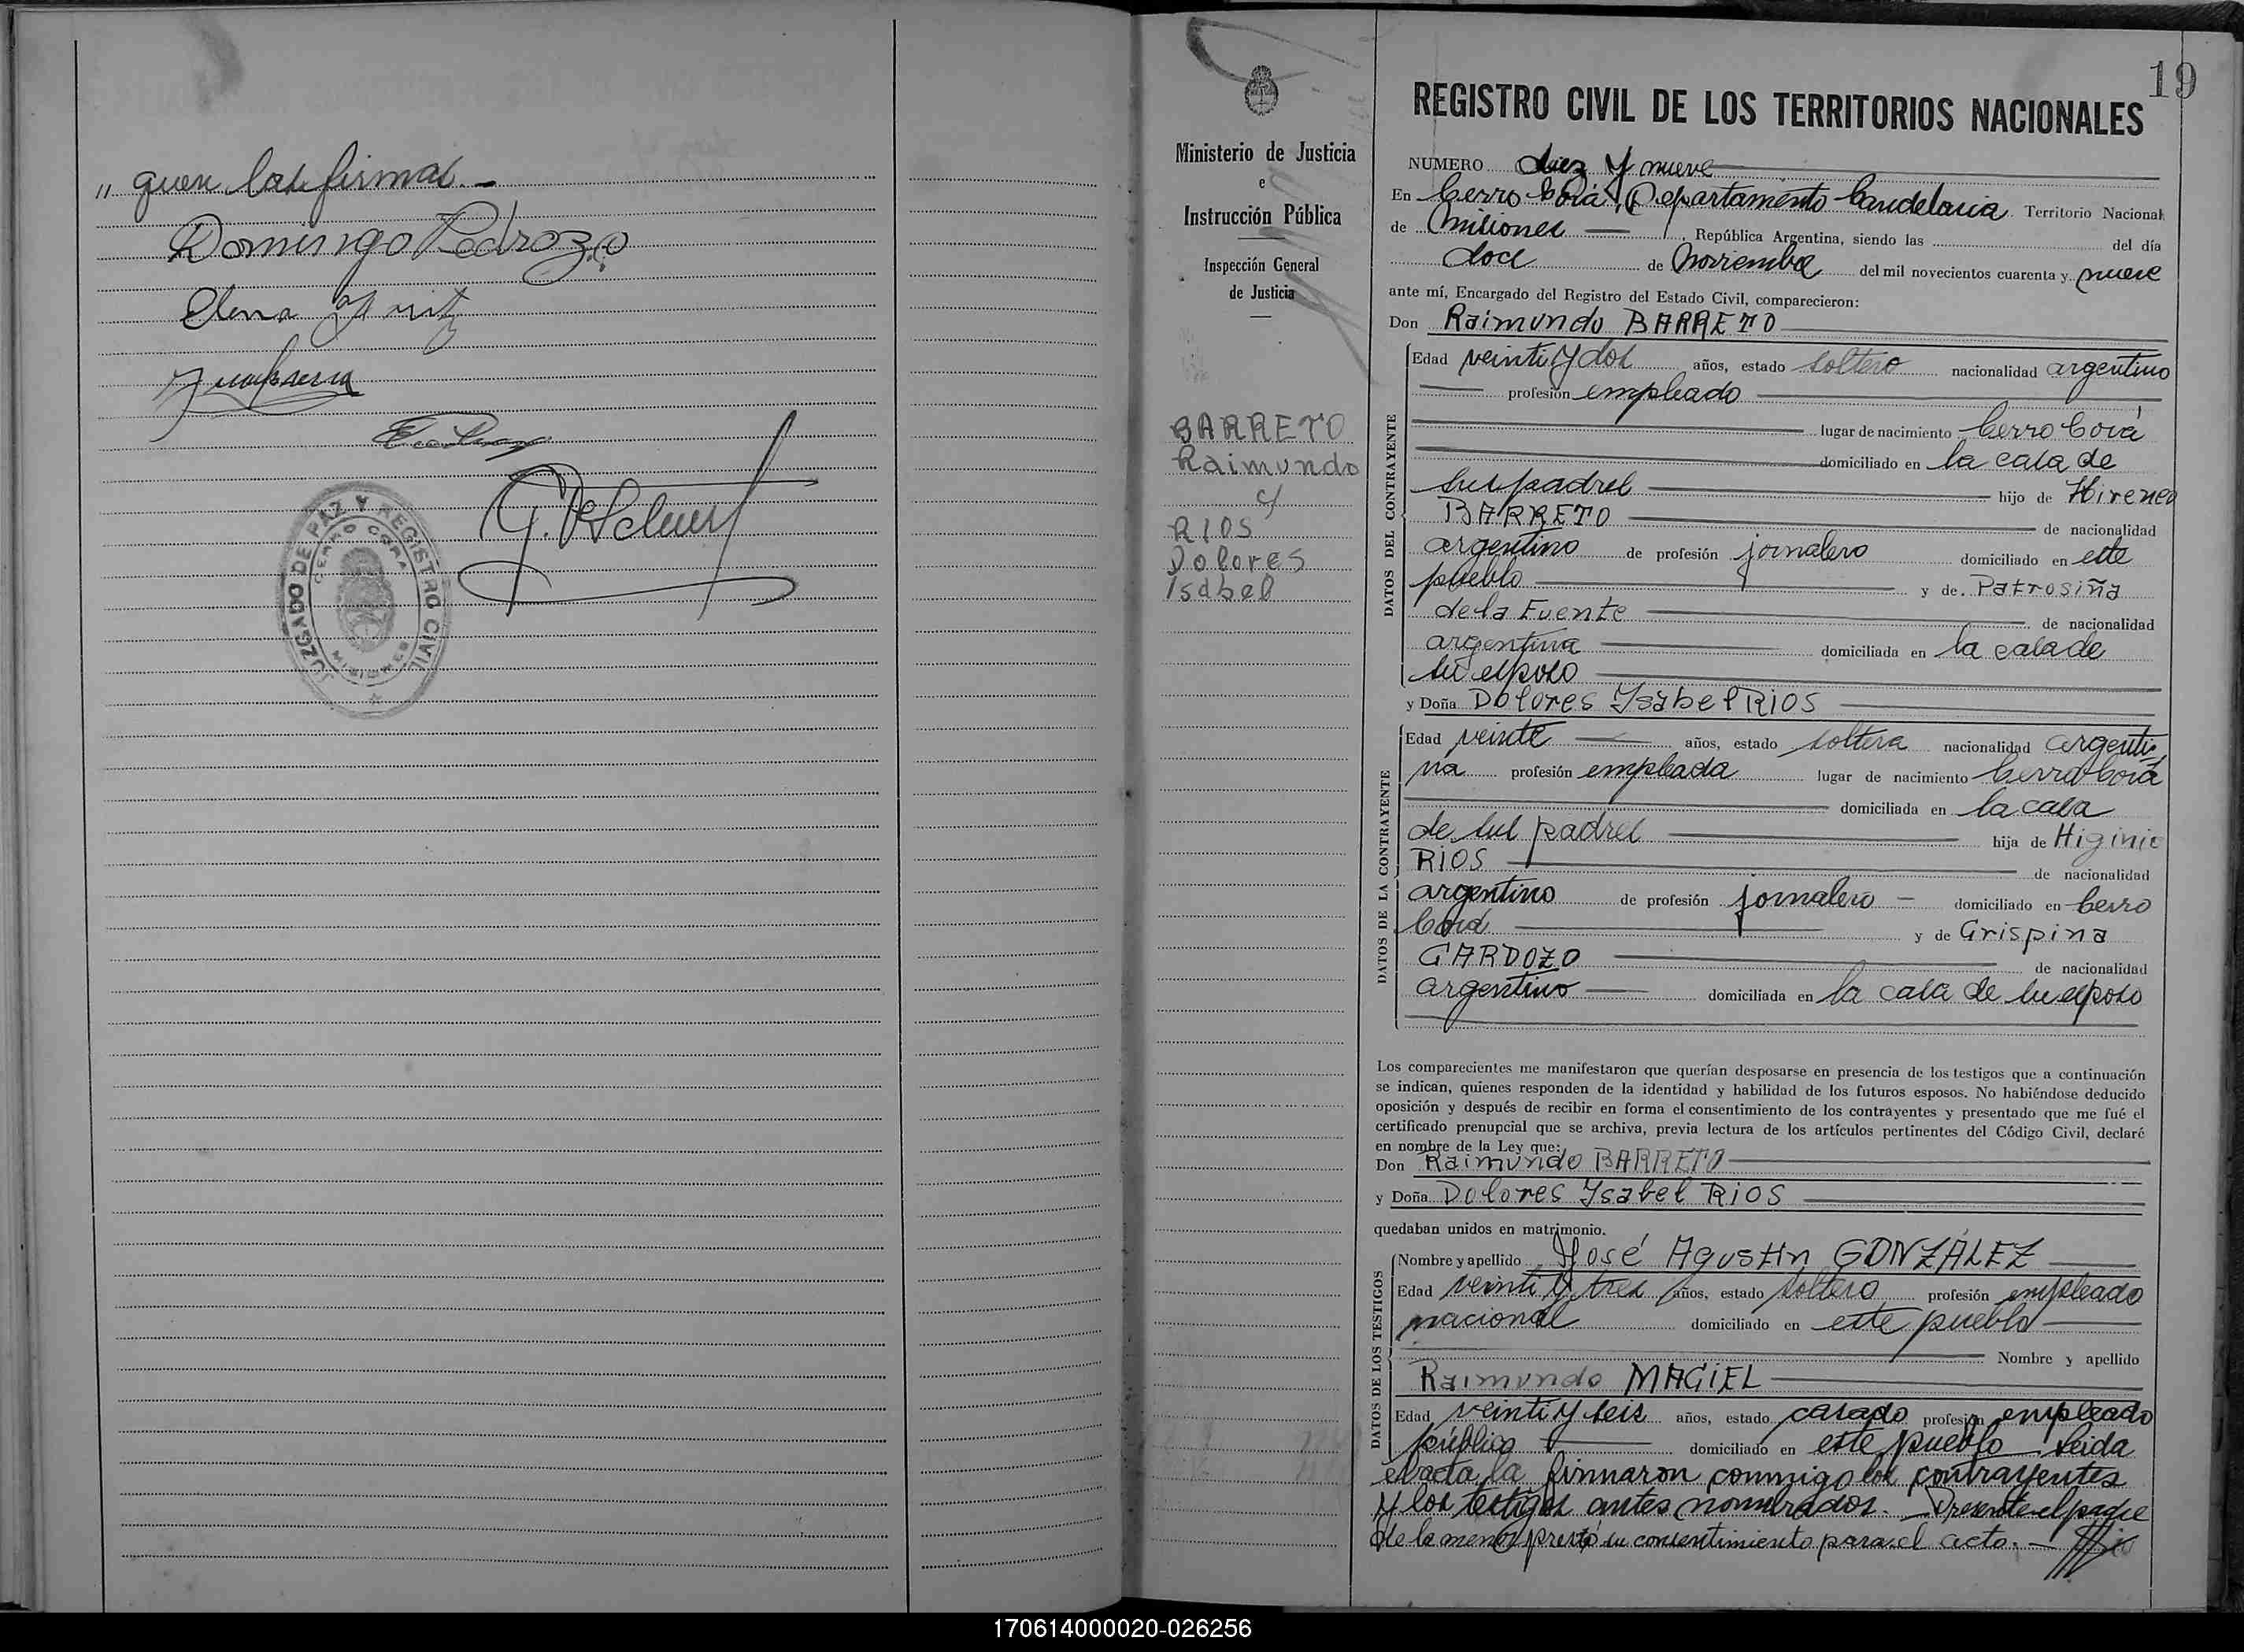 " quen
firmas.-
Domingo Pedrozo
Elena
JUZGADO DE PAZ Y REGISTRO CIVIL
CERRO CORA
MISIONES
19
Ministerio de Justicia
e
Instrucción Pública
Inspección General
de Justicia
BARRETO
Raimundo
c/
RIOS
Dolores
Isabel
REGISTRO CIVIL DE LOS TERRITORIOS NACIONALES
NUMERO diez y nueve
En Cerro Corá, Departamento Candelaria Territorio Nacional
de Misiones, República Argentina, siendo las del día
doce de Noviembre del mil novecientos cuarenta y nueve
ante mí, Encargado del Registro del Estado Civil, comparecieron:
Don Raimundo BARRETO
DATOS DEL CONTRAYENTE
Edad veinti y dos años, estado soltero nacionalidad argentino
profesión empleado
lugar de nacimiento Cerro Corá
domiciliado en la casa de
sus padres hijo de Hireneo
BARRETO de nacionalidad
argentino de profesión jornalero domiciliado en este
pueblo y de Patrosiña
de la Fuente de nacionalidad
argentina domiciliada en la casa de
su esposo
y Doña Dolores Ysabel RIOS
DATOS DE LA CONTRAYENTE
Edad veinte años, estado soltera nacionalidad argenti-
na profesión empleada lugar de nacimiento Cerro Corá
domiciliada en la casa
de sus padres hija de Higinio
RIOS de nacionalidad
argentino de profesión jornalero - domiciliado en Cerro
Corá y de Crispina
CARDOZO de nacionalidad
argentino domiciliada en la casa de su esposo
Los comparecientes me manifestaron que querían desposarse en presencia de los testigos que a continuación
se indican, quienes responden de la identidad y habilidad de los futuros esposos. No habiéndose deducido
oposición y después de recibir en forma el consentimiento de los contrayentes y presentado que me fué el
certificado prenupcial que se archiva, previa lectura de los artículos pertinentes del Código Civil, declaré
en nombre de la Ley que:
Don Raimundo BARRETO
y Doña Dolores Ysabel RIOS
quedaban unidos en matrimonio.
DATOS DE LOS TESTIGOS
Nombre y apellido José Agustín GONZÁLEZ
Edad veinti y tres años, estado soltero profesión empleado
nacional domiciliado en este pueblo
Nombre y apellido
Raimundo MACIEL
Edad veinti y seis años, estado casado profesión empleado
público domiciliado en este pueblo Leida
el acta la firmaron conmigo los contrayentes
y los testigos antes nombrados. - Presente el padre
de la menor prestó su consentimiento para el acto. -
170614000020-026256